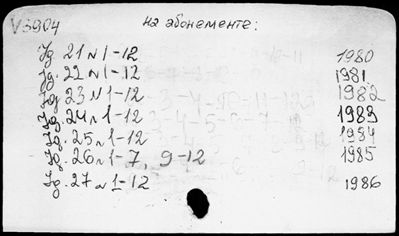 V 3904
на абонементе:
Jg. 21 N 1-12 1980
Jg. 22 N 1-12 1981
Jg. 23 N 1-12 1982
Jg. 24 N 1-12 1983
Jg. 25 N 1-12 1984
Jg. 26 N 1-7, 9-12 1985
Jg. 27 N 1-12 1986